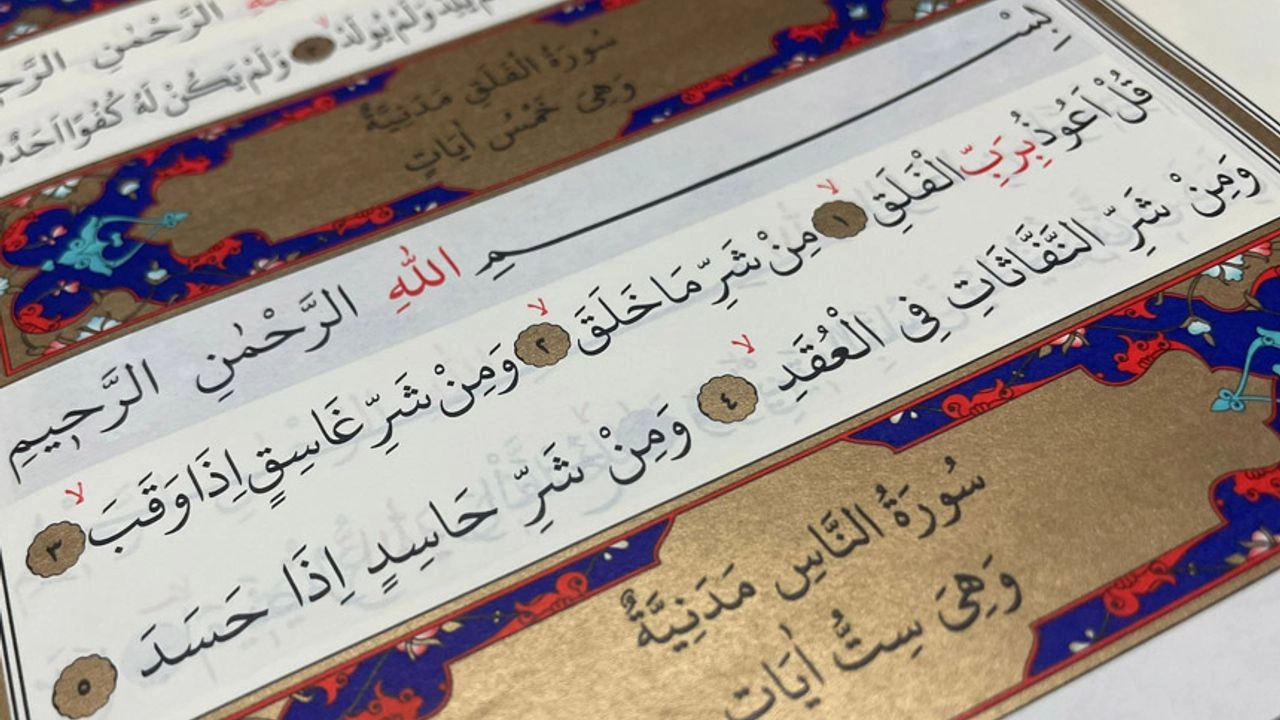 الرَّحْمٰنِ
لَمْ يَلِدْ وَلَمْ يُولَدْ ٣ وَلَمْ يَكُنْ لَهُ كُفُوًا اَحَدٌ
سُورَةُ الْفَلَقِ مَدَنِيَّةٌ
وَهِىَ خَمْسُ اٰيَاتٍ
بِسْمِ اللّٰهِ الرَّحْمٰنِ الرَّح۪يمِ
قُلْ اَعُوذُ بِرَبِّ الْفَلَقِۙ ١ مِنْ شَرِّ مَا خَلَقَۙ ٢ وَمِنْ شَرِّ غَاسِقٍ اِذَا وَقَبَۙ ٣
وَمِنْ شَرِّ النَّفَّاثَاتِ فِى الْعُقَدِۙ ٤ وَمِنْ شَرِّ حَاسِدٍ اِذَا حَسَدَ ٥
سُورَةُ النَّاسِ مَدَنِيَّةٌ
وَهِىَ سِتُّ اٰيَاتٍ